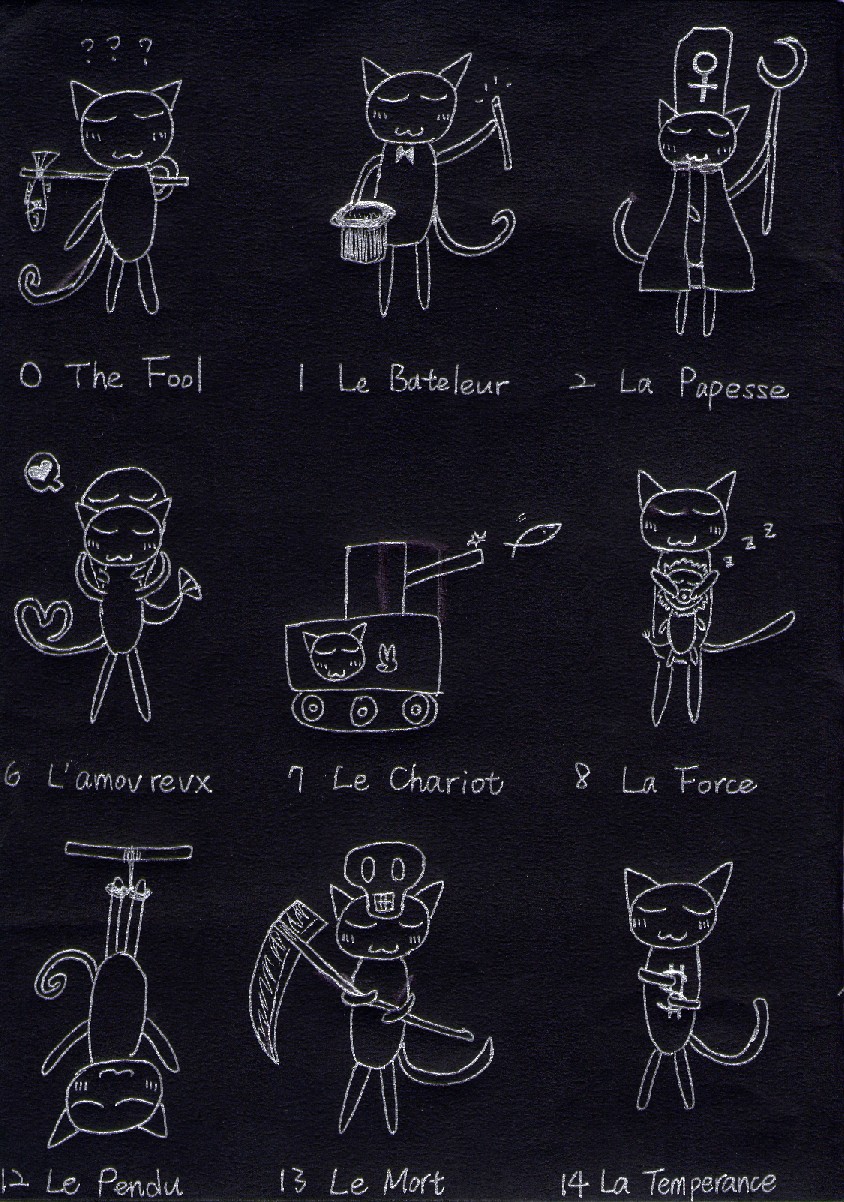 ? ? ?
0 The Fool
1 Le Bateleur
2 La Papesse
z z z
6 L'amovrevx
7 Le Chariot
8 La Force
12 Le Pendu
13 Le Mort
14 La Temperance